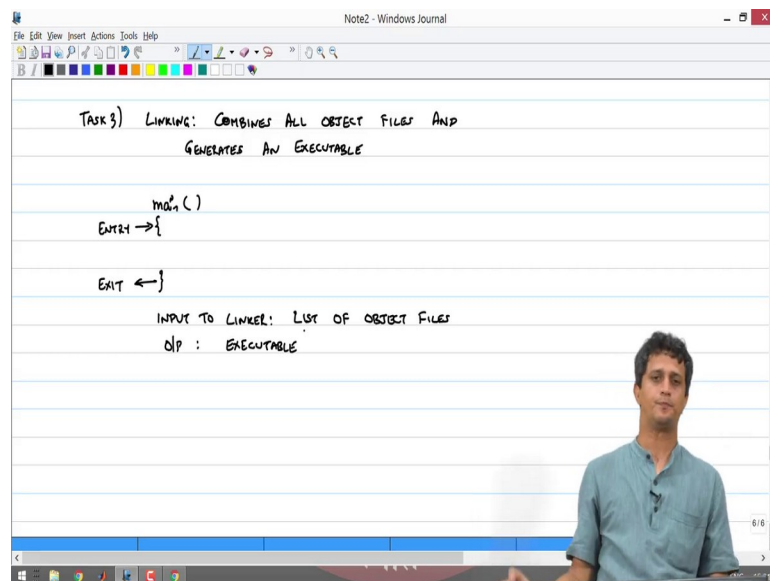 Note2 - Windows Journal
File Edit View Insert Actions Tools Help
B I
TASK 3) LINKING: COMBINES ALL OBJECT FILES AND
GENERATES AN EXECUTABLE
main()
ENTRY →{
EXIT ←}
INPUT TO LINKER: LIST OF OBJECT FILES
O/P : EXECUTABLE
6/6